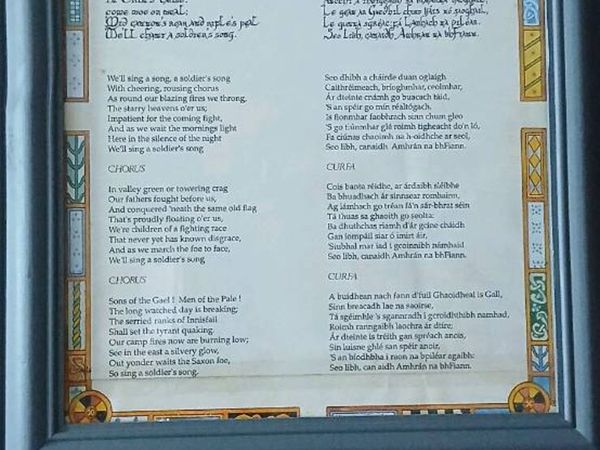 come woe or weal:
Mid cannon's roar and rifle's peal
We'll chant a soldier's song.
We'll sing a song, a soldier's song
With cheering, rousing chorus
As round our blazing fires we throng,
The starry heavens o'er us;
Impatient for the coming fight,
And as we wait the mornings light
Here in the silence of the night
We'll sing a soldier's song
CHORUS
In valley green or towering crag
Our fathers fought before us,
And conquered 'neath the same old flag
That's proudly floating o'er us,
We're children of a fighting race
That never yet has known disgrace,
And as we march the foe to face,
We'll sing a soldier's song
CHORUS
Sons of the Gael ! Men of the Pale !
The long watched day is breaking;
The serried ranks of Innisfail
Shall set the tyrant quaking.
Our camp fires now are burning low;
See in the east a silvery glow,
Out yonder waits the Saxon foe,
So sing a soldier's song.
Le gean ar Ghaedhil chun báis nó saoghail,
Le gunna sgréach fá lámhach na piléar,
Seo Libh, canaidh Amhrán na bhFiann.
Seo dhibh a cháirde duan oglaigh
Caithréimeach, bríoghmhar, ceolmhar,
Ár dteinte cnámh go buacach táid,
'S an spéir go mín réaltógach.
Is fionmhar faobhrach sinn chun gleo
'S go tiúnmhar glé roimh tigheacht do'n ló,
Fa ciúnas chaoimh na h-oidhche ar seol,
Seo libh, canaidh Amhrán na bhFiann.
CURFA
Cois banta réidhe, ar árdaibh sléibhe
Ba bhuadhach ár sinnsear romhainn,
Ag lámhach go tréan fá'n sár-bhrat séin
Tá thuas sa ghaoith go seolta:
Ba dhuthchas riamh d'ár gcine cháidh
Gan iompáil siar ó imirt áir,
Siubhal mar iad i gcoinnibh námhaid
Seo libh, canaidh Amhrán na bhFiann.
CURFA
A buidhean nach fann d'fuil Ghaoidheal is Gall,
Sinn breacadh lae na saoirse,
Tá sgéimhle 's sgannradh i gcroidhthibh namhad,
Roimh ranngaibh laochra ár dtíre;
Ár dteinte is tréith gan spréach anois,
Sin luisne ghlé san spéir anoir,
'S an bíodhbha i raon na bpiléar agaibh:
Seo libh, can aidh Amhrán na bhFiann.